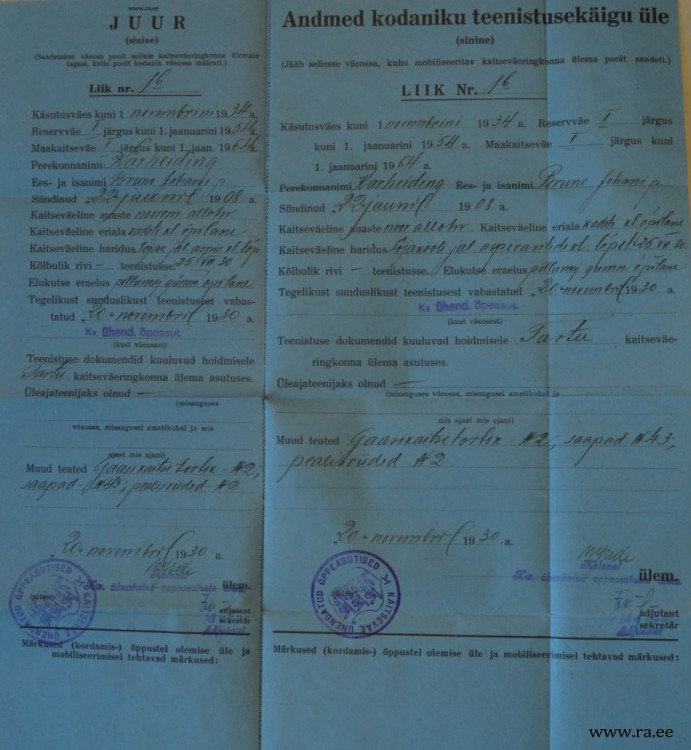 www.ra.ee
JUUR
(sinine)
(Saadetakse väeosa poolt sellele kaitseväeringkonna ülemale
tagasi, kelle poolt kodanik väeossa määrati.)
Liik nr. 16
Käsutusväes kuni 1 novembrini 1934 a.
Reservväe I järgus kuni 1. jaanuarini 1954 a.
Maakaitseväe I järgus kuni 1. jaan. 1964 a.
Perekonnanimi Karheiding
Ees- ja isanimi Johani p.
Sündinud 22 juunil 1908 a.
Kaitseväeline auaste noorem allohv
Kaitseväeline eriala kadeti kl õpilane
Kaitseväeline haridus Sõjak jal aspir. kl. lõp
Kõlbulik rivi — teenistusse. 25. VII 30
Elukutse eraelus põllumaj gümn. õpilane
Tegelikust sunduslikust teenistusest vabas-
tatud „20" novembril 1930 a.
Kv. Ühend. Õpeasut.
(kust väeosast)
Teenistuse dokumendid kuuluvad hoidmisele
Tartu kaitseväeringkonna ülema asutuses.
Üleajateenijaks olnud —
(missuguses
väeosas, missugusel ametikohal ja mis
ajast mis ajani)
Muud teated Gaasikaitse torbik - N2,
saapad - N43, pealisriided - N2
„20" novembril 1930 a.
Kolonel
Kv. ühendatud õppeasutiste ülem.
adjutant
sekretär
KAITSEVÄE ÜHENDATUD ÕPPEASUTISED
Märkused (kordamis-) õppustel olemise üle ja
mobiliseerimisel tehtavad märkused:
Andmed kodaniku teenistusekäigu üle
(sinine)
(Jääb sellesse väeossa, kuhu mobiliseeritav kaitseväeringkonna ülema poolt saadeti.)
LIIK Nr. 16
Käsutusväes kuni 1 novembrini 1934 a. Reservväe I järgus
kuni 1. jaanuarini 1954 a. Maakaitseväe I järgus kuni
1. jaanuarini 1964 a.
Perekonnanimi Karheiding Ees- ja isanimi Johani p.
Sündinud 22 juunil 1908 a.
Kaitseväeline auaste noor. allohv Kaitseväeline eriala kadeti kl õpilane
Kaitseväeline haridus Sõjakooli jal aspirantide kl. lõpet. 25. VII 30
Kõlbulik rivi — teenistusse. Elukutse eraelus põllumaj gümn. õpilane
Tegelikust sunduslikust teenistusest vabastatud „20" novembril 1930 a.
Kv Ühend. Õpeasut.
(kust väeosast)
Teenistuse dokumendid kuuluvad hoidmisele Tartu kaitseväe-
ringkonna ülema asutuses.
Üleajateenijaks olnud —
(missuguses väeosas, missugusel ametikohal ja
mis ajast mis ajani)
Muud teated Gaasikaitse torbik - N2, saapad N43,
pealisriided N2.
„20" novembril 1930 a.
Kolonel
Kv. ühendatud õppeasutiste ülem.
adjutant
sekretär
KAITSEVÄE ÜHENDATUD ÕPPEASUTISED
Märkused (kordamis-) õppustel olemise üle ja mobiliseerimisel tehtavad märkused:
www.ra.ee